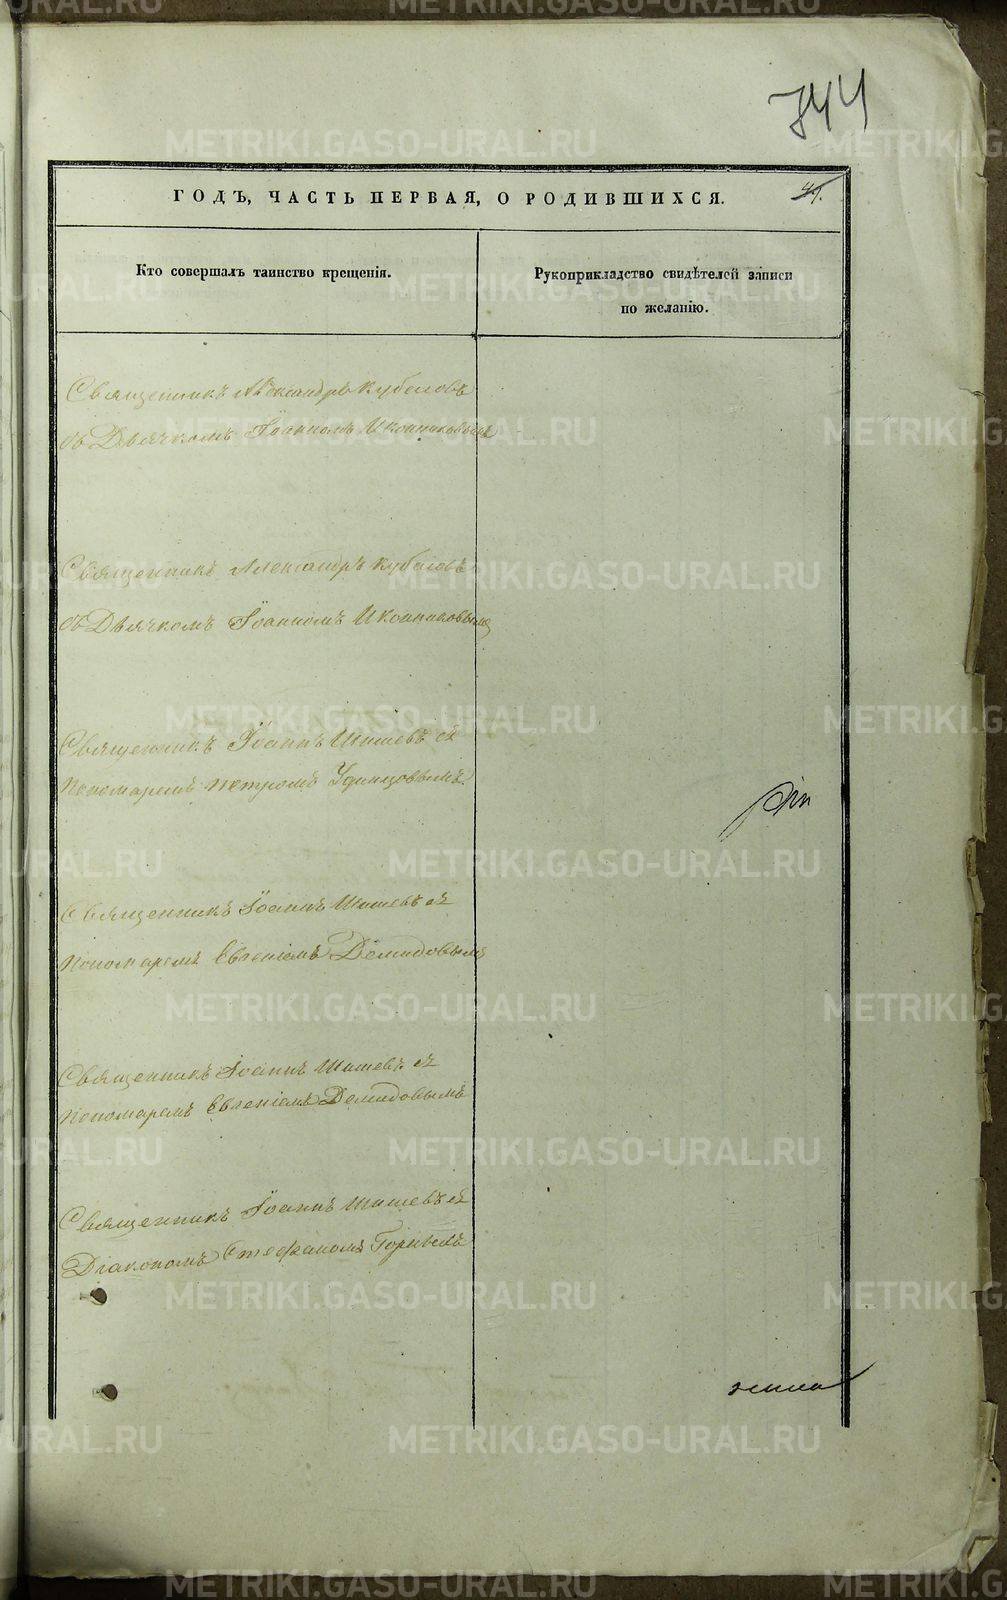 744
ГОДЪ, ЧАСТЬ ПЕРВАЯ, О РОДИВШИХСЯ.
Кто совершалъ таинство крещенія.
Рукоприкладство свидѣтелей записи
по желанію.
Священникъ Александръ Кубасовъ
съ Дьячкомъ Іоанномъ Иконниковымъ
Священникъ Александръ Кубасовъ
съ Дьячкомъ Іоанномъ Иконниковымъ
Священникъ Іоаннъ Шишевъ съ
Пономаремъ Петромъ Удинцовымъ
Священникъ Іоаннъ Шишевъ съ
Пономаремъ Евгеніемъ Демидовымъ
Священникъ Іоаннъ Шишевъ съ
Пономаремъ Евгеніемъ Демидовымъ
Священникъ Іоаннъ Шишевъ съ
Діакономъ Стефаномъ
METRIKI.GASO-URAL.RU